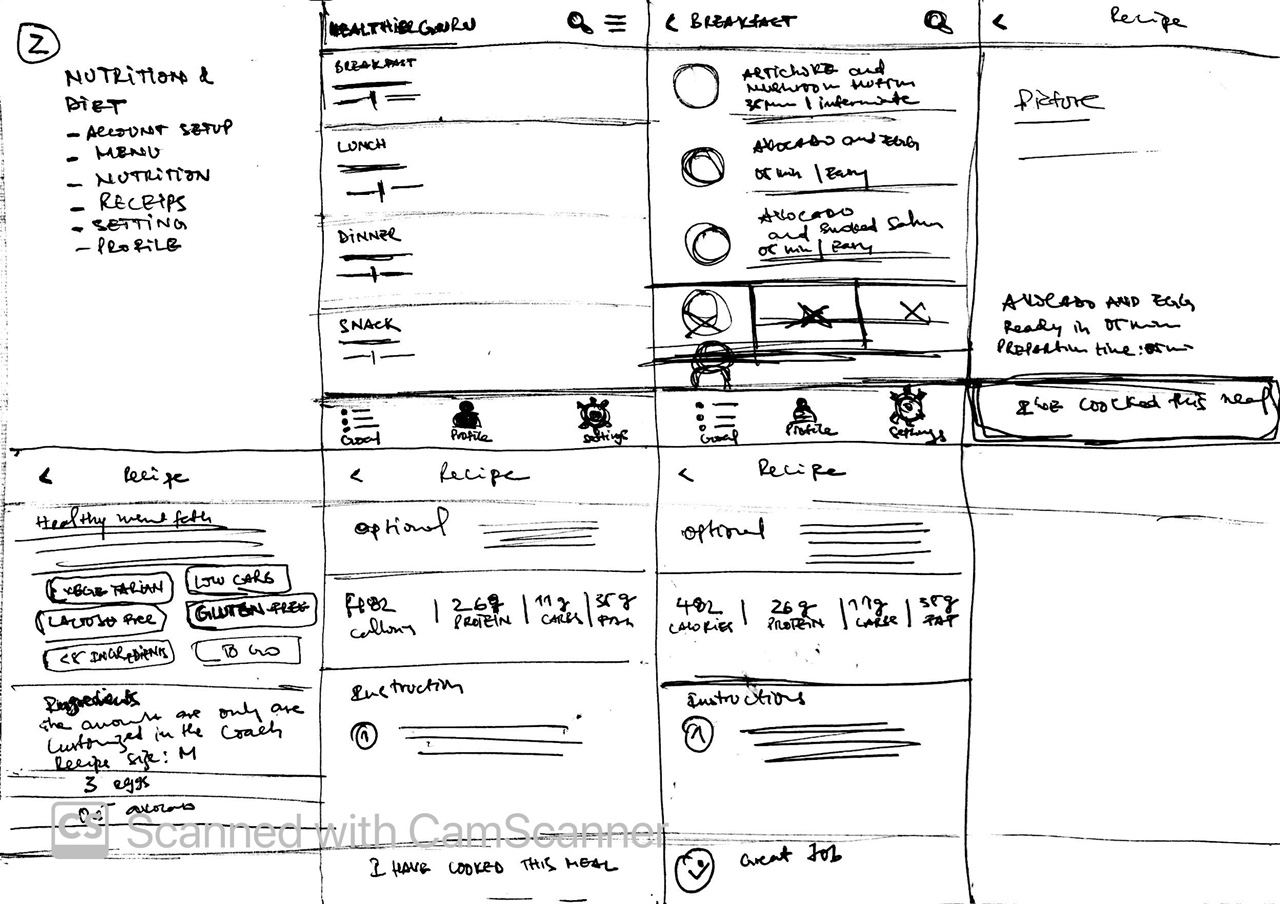 2
NUTRITION &
DIET
- ACCOUNT SETUP
- MENU
- NUTRITION
- RECEIPS
- SETTING
- PROFILE
HEALTHIER GURU
BREAKFAST
LUNCH
DINNER
SNACK
Goal
Profile
Settings
< BREAKFAST
ARTICHOKE and
MUSHROOM
35 min | intermiate
AVOCADO and EGG
05 min | Easy
AVOCADO
and smoked Salmon
05 min | Easy
Goal
Profile
Settings
< Recipe
Picture
AVOCADO AND EGG
Ready in 05 min
time: 05 min
cooked this meal
< Recipe
Healthy
VEGETARIAN
LOW CARB
LACTOSE FREE
GLUTEN-FREE
<5 INGREDIENTS
TO GO
Ingredients
the amounts are only are
Customized in the Coach
Recipe size: M
3 eggs
< Recipe
Optional
482 | 26g | 11g | 35g
PROTEIN CARBS
Instruction
1
I HAVE COOKED THIS MEAL
< Recipe
Optional
482 | 26g | 11g | 35g
CALORIES PROTEIN CARBS FAT
Instructions
1
Great Job
CS Scanned with CamScanner